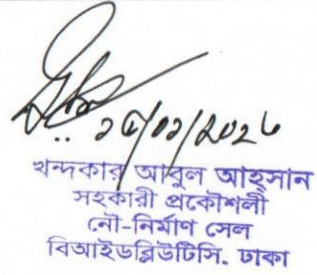 খন্দকার আবুল আহ্সান
সহকারী প্রকৌশলী
নৌ-নির্মাণ সেল
বিআইডব্লিউটিসি. ঢাকা